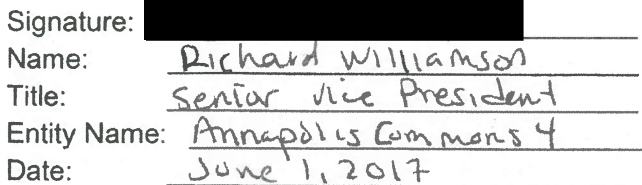 Signature:
Name: Richard Williamson
Title: Senior Vice President
Entity Name: Annapolis Commons 4
Date: June 1, 2017